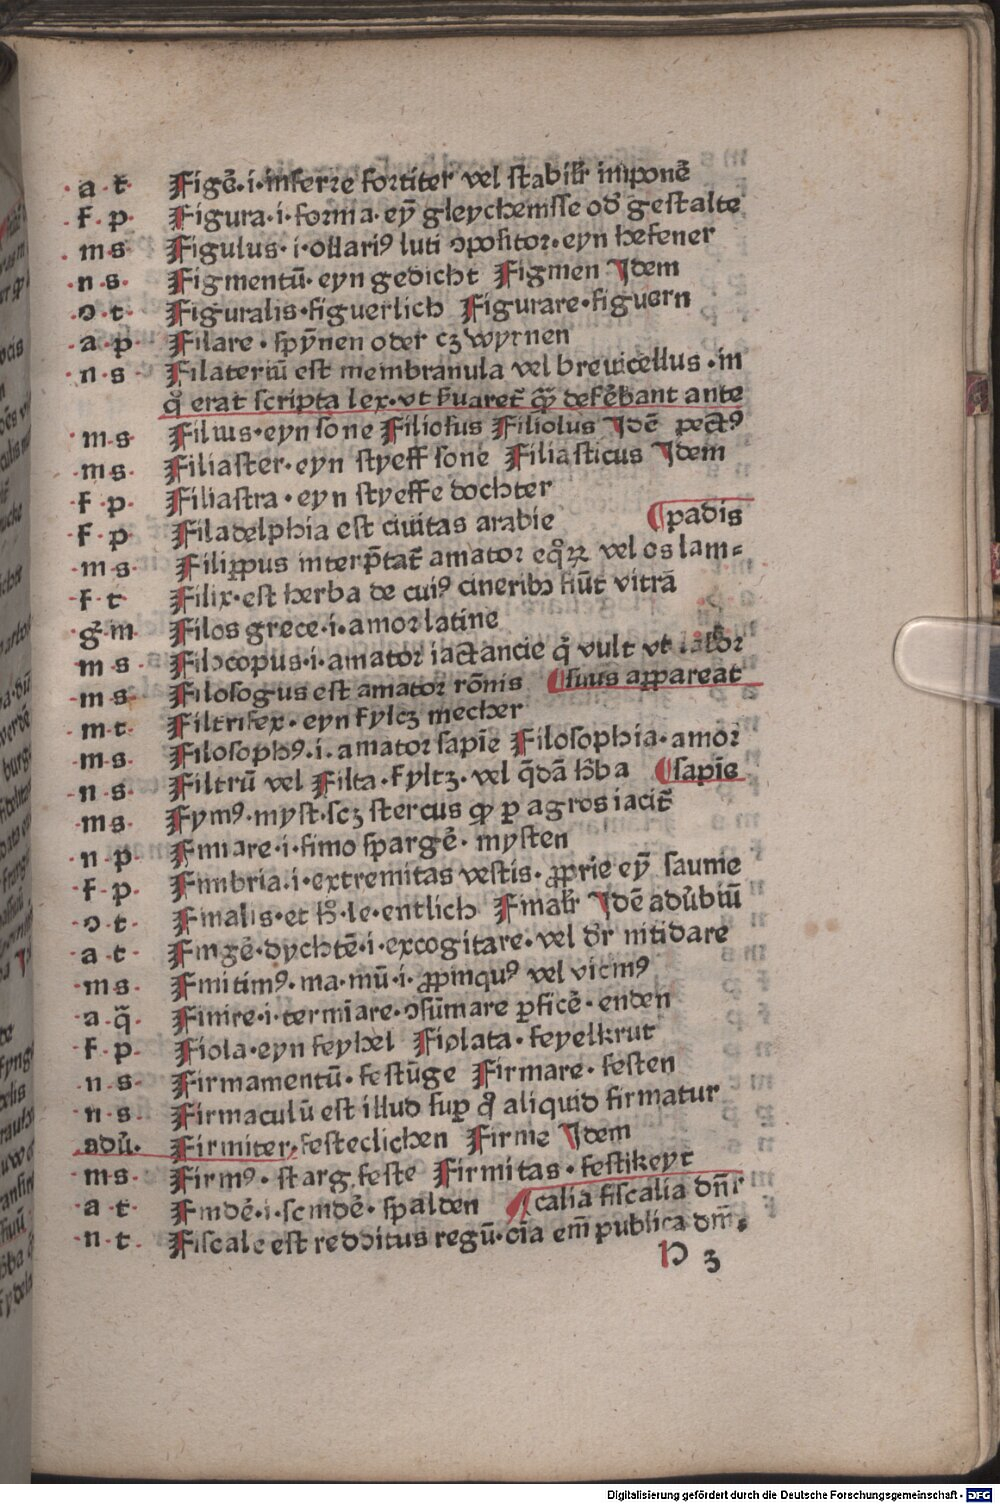 ·a·t̄· Figē·i·inferre fortiter vel stabilr̄ imponē
·f·p· Figura·i·forma·eyn̄ gleychemsse od' gestalte
·m·s· Figulus·i·ollari⁹ luti ↄpositor·eyn hefener
·n·s· Figmentū·eyn gedicht Figmen Jdem
·ↄ·t· Figuralis·figuerlich Figurare·figuern
·a·p· Filare·spȳnen oder cʒwyrnen
·n·s· Filateriū est membranula vel breuicellus·in
q̊ erat scripta lex·vt
ante
·m·s· Filius·eyn sone Filiosus Filiolus Jdē pect⁹
·m·s· Filiaster·eyn styeff sone Filiasticus Jdem
·f·p· Filiastra·eyn styeffe dochter
·f·p· Filadelphia est ciuitas arabie ¶padis
·m·s· Filippus interp̄tat̄ amator eq̊ꝝ vel os lam⸗
·f·t· Filix·est herba de cui⁹ cinerib⁹ fiūt vitrā
·g·m· Filos grece·i·amor latine
·m·s· Filocopus·i·amator iactancie q̄ vult vt labor
·m·s· Filosogus est amator rōnis ¶suus appareat
·m·t· Filtrifex·eyn fyltʒ mecher
·m·s· Filosoph⁹·i·amator sapīe Filosophia·amor
·n·s· Filtrū vel Filta·fyltʒ·vel q̄dā h̄ba ¶sapīe
·m·s· Fym⁹·myst·scʒ stercus qḋ p agros iacit̄
·n·p· Fimare·i·fimo spargē·mysten
·f·p· Fimbria·i·extremitas vestis·ꝓprie eyn̄ saume
·ↄ·t· Finalis·et h̊·le·entlich Finalr̄ Jdē adūbiū
·a·t· Fingē·dychtē·i·excogitare·vel d̄r nitidare
·m·s· Finitim⁹·ma·mū·i·ꝓpinqu⁹ vel vicin⁹
·a·q̄· Finire·i·termīare·ↄsūmare ꝑficē·enden
·f·p· Fiola·eyn feyhel Fiolata·feyelkrut
·n·s· Firmamentū·festūge Firmare·festen
·n·s· Firmaculū est illud suꝑ q̊ aliquid firmatur
·adū· Firmiter·festeclichen Firme Jdem
·m·s· Firm⁹·starg·feste Firmitas·festikeyt
·a·t· Findē·i·scindē·spalden ¶calia fiscalia dn̄r
·n·t· Fiscale est redditus regū·oīa em̄ publica dm̄.
p 3
Digitalisierung gefördert durch die Deutsche Forschungsgemeinschaft - DFG